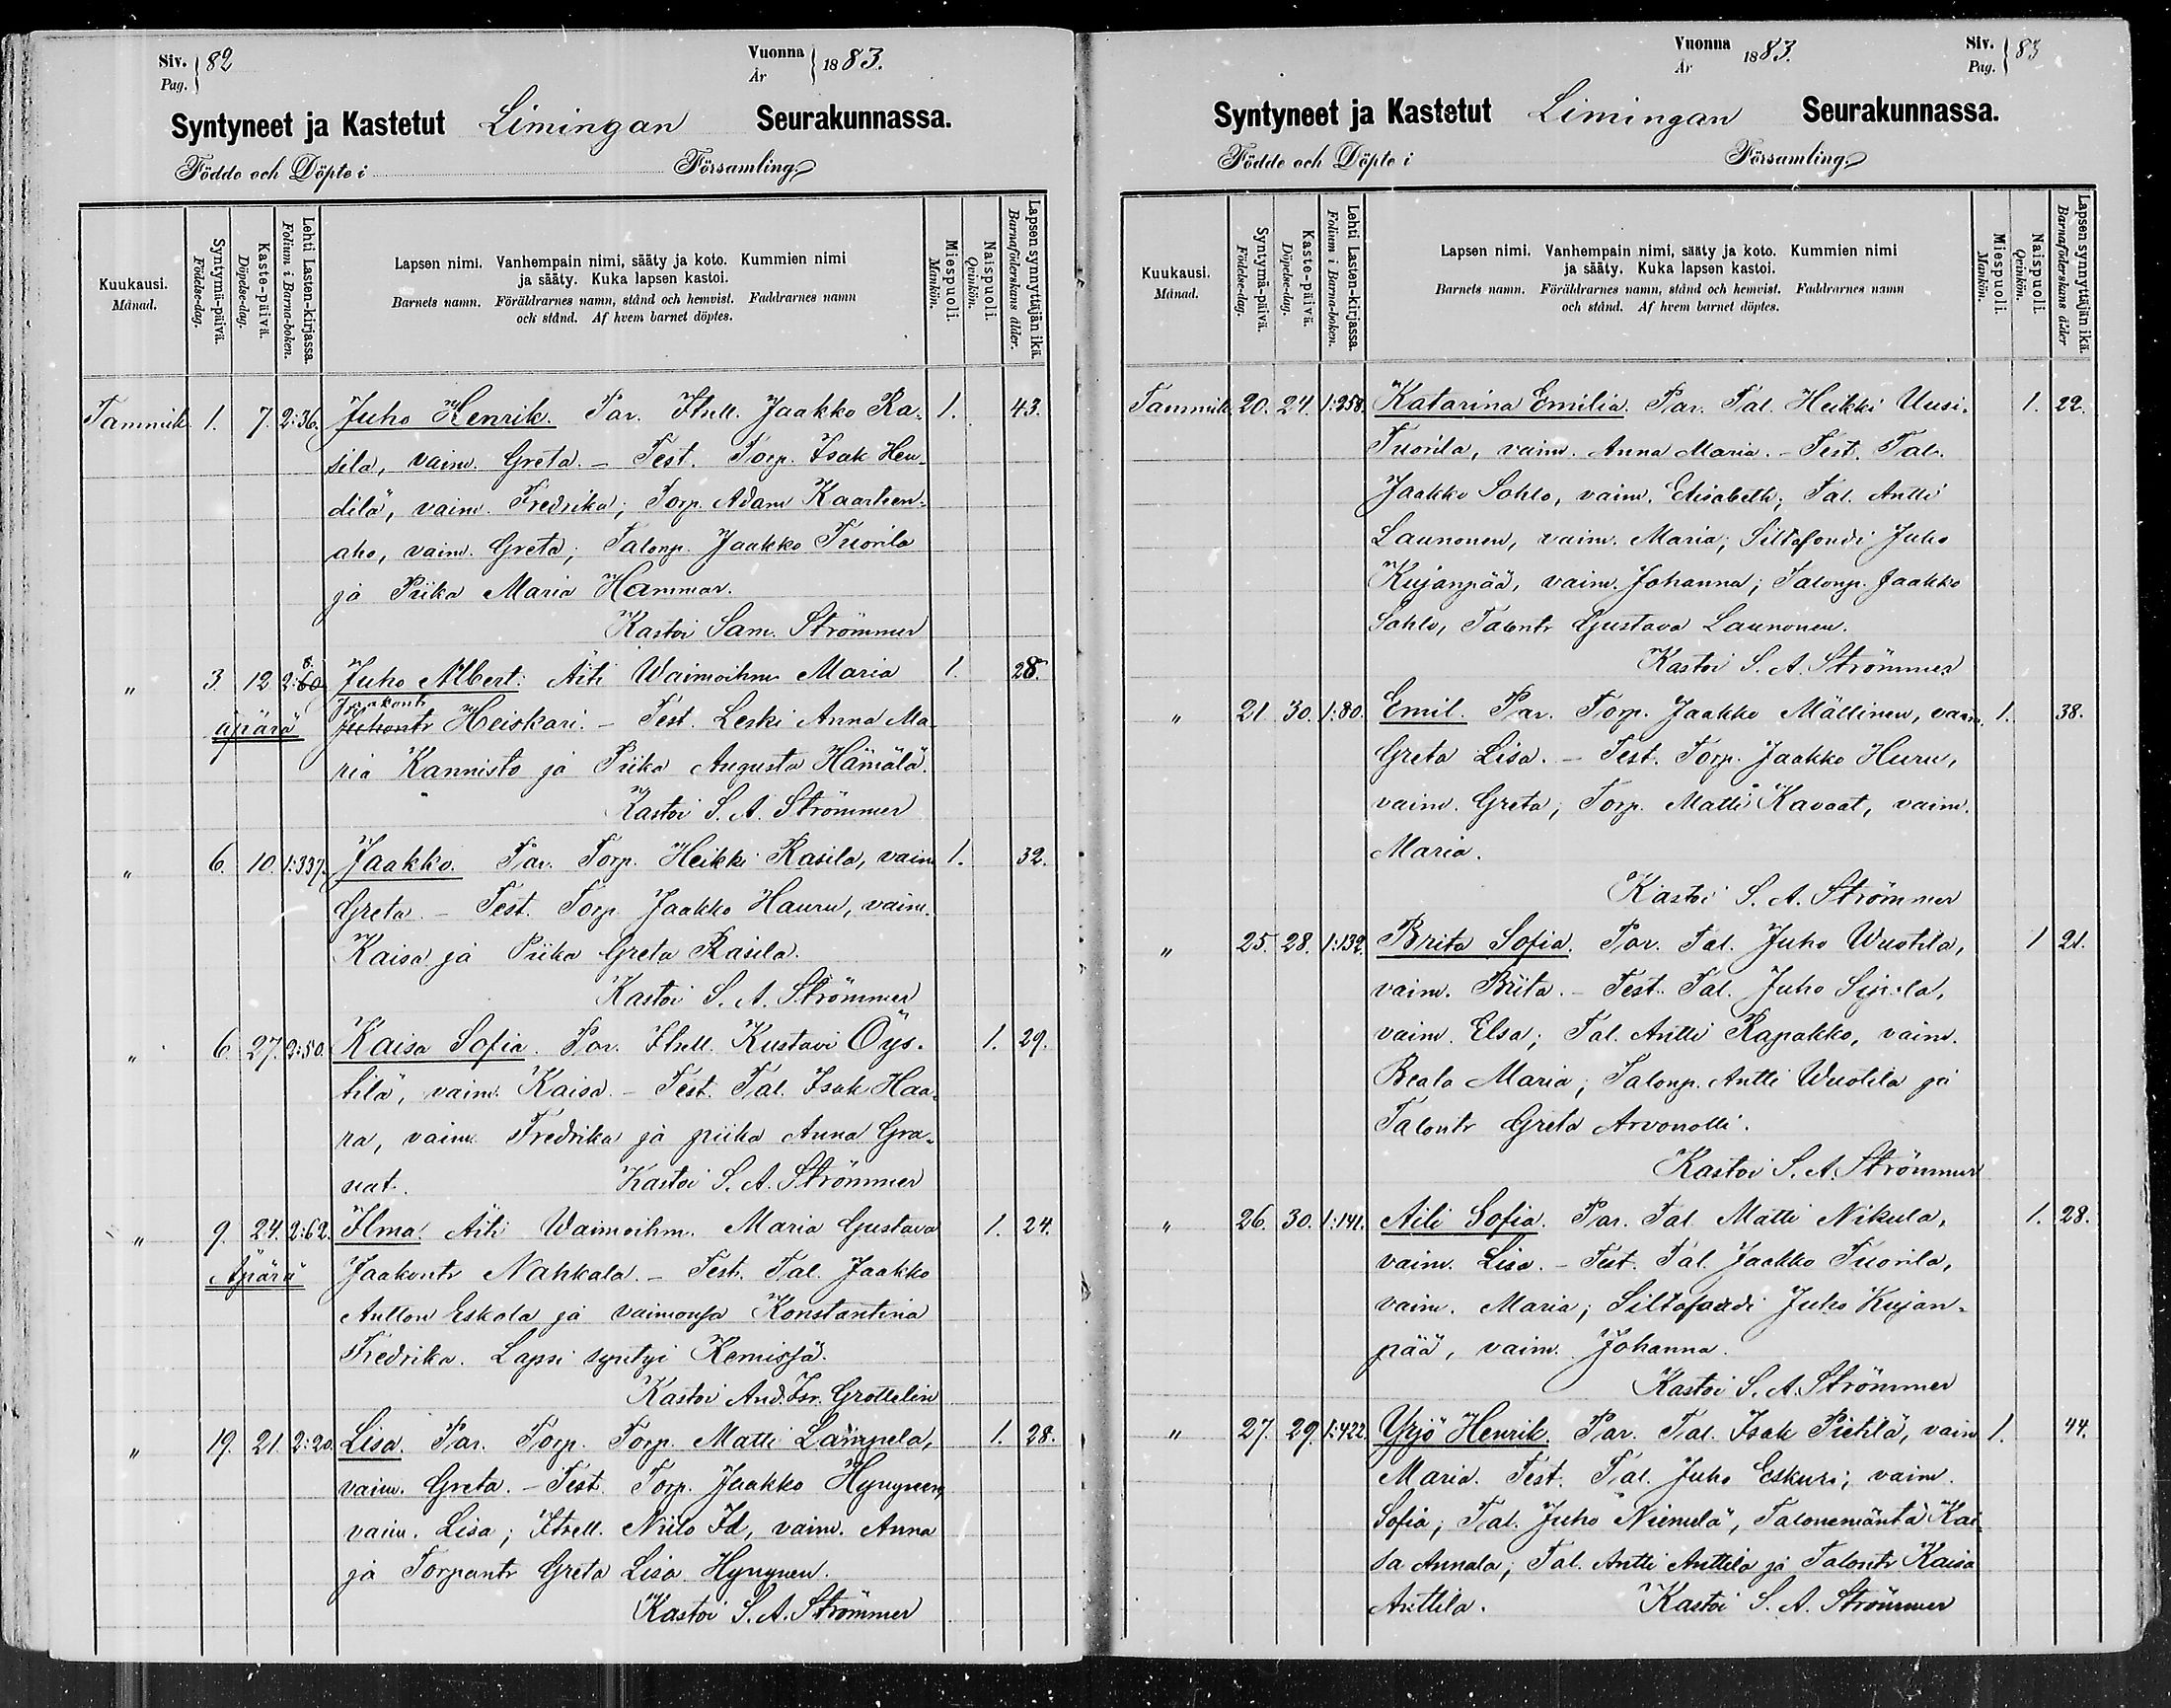 Siv. 82
Pag.
Vuonna 1883.
År
Syntyneet ja Kastetut Limingan Seurakunnassa.
Födde och Döpte i Församling.
Kuukausi.
Månad.
Syntymä-päivä.
Födelse-dag.
Kaste-päivä.
Döpelse-dag.
Lehti Lasten-kirjassa.
Folium i Barna-boken.
Lapsen nimi. Vanhempain nimi, sääty ja koto. Kummien nimi
ja sääty. Kuka lapsen kastoi.
Barnets namn. Föräldrarnes namn, stånd och hemvist. Faddrarnes namn
och stånd. Af hvem barnet döptes.
Miespuoli.
Mankön.
Naispuoli.
Qvinkön.
Lapsen synnyttäjän ikä.
Barnaföderskans ålder.
Tammik. 1. 7. 2:36. Juho Henrik. Par. Itsell. Jaakko Ra- 1. 43.
sila, vaim. Greta. – Test. Torp. Isak Hen-
dilä, vaim. Fredrika; Torp. Adam Kaarteen-
aho, vaim. Greta; Talonp. Jaakko Tuorila
ja Piika Maria Hammar.
Kastoi Sam. Strömmer
" 3. 12 2:60 8. Juho Albert: Äiti Waimoihm. Maria 1. 28.
Jaakontr
äpärä Juhontr Heiskari. – Test. Leski Anna Ma-
ria Kannisto ja Piika Augusta Hämälä.
Kastoi S. A. Strömmer
" 6. 10. 1:337. Jaakko. Par. Torp. Heikki Rasila, vaim 1. 32.
Greta. – Test. Torp. Jaakko Hauru, vaim.
Kaisa ja Piika Greta Rasila.
Kastoi S. A. Strömmer
" 6. 27. 2:50. Kaisa Sofia. Par. Itsell. Kustavi Öys- 1. 29.
tilä, vaim. Kaisa. – Test. Tal. Isak Haa-
ra, vaim. Fredrika ja piika Anna Gra-
nat. Kastoi S. A. Strömmer
" 9. 24. 2:62. Ilma. Äiti Waimoihm. Maria Gustava 1. 24.
Äpärä Jaakontr Nahkala. – Test. Tal. Jaakko
Anton Eskola ja vaimonsa Konstantina
Fredrika. Lapsi syntyi Kemissä.
Kastoi And. Isr. Grottelin
" 19. 21. 2:20. Lisa. Par. Torp. Torp. Matti Lampela, 1. 28.
vaim. Greta. – Test. Torp. Jaakko Hyrynen,
vaim. Lisa; Itsell. Niilo Id, vaim. Anna
ja Torpantr Greta Lisa Hyrynen.
Kastoi S. A. Strömmer
Vuonna 1883.
År
Siv. 83
Pag.
Syntyneet ja Kastetut Limingan Seurakunnassa.
Födde och Döpte i Församling.
Kuukausi.
Månad.
Syntymä-päivä.
Födelse-dag.
Kaste-päivä.
Döpelse-dag.
Lehti Lasten-kirjassa.
Folium i Barna-boken.
Lapsen nimi. Vanhempain nimi, sääty ja koto. Kummien nimi
ja sääty. Kuka lapsen kastoi.
Barnets namn. Föräldrarnes namn, stånd och hemvist. Faddrarnes namn
och stånd. Af hvem barnet döptes.
Miespuoli.
Mankön.
Naispuoli.
Qvinkön.
Lapsen synnyttäjän ikä.
Barnaföderskans ålder
Tammik. 20. 24. 1:258. Katarina Emilia. Par. Tal. Heikki Uusi- 1. 22.
Tuorila, vaim. Anna Maria. – Test. Tal.
Jaakko Sohlo, vaim. Elisabeth; Tal. Antti
Launonen, vaim. Maria; Siltafoudi Juho
Kujanpää, vaim. Johanna; Talonp. Jaakko
Sohlo, Talontr Gustava Launonen.
Kastoi S. A. Strömmer
" 21 30. 1:80. Emil. Par. Torp. Jaakko Mällinen, vaim. 1. 38.
Greta Lisa. – Test. Torp. Jaakko Huru,
vaim. Greta; Torp. Matti Kavaat, vaim.
Maria.
Kastoi S. A. Strömmer
" 25. 28. 1:132. Brita Sofia. Par. Tal. Juho Wuotila, 1 21.
vaim. Briita. – Test. Tal. Juho Sipola,
vaim. Elsa; Tal. Antti Rapakko, vaim.
Beata Maria; Talonp. Antti Wuotila ja
Talontr Greta Arvonolli.
Kastoi S. A. Strömmer
" 26. 30. 1:141. Aili Sofia. Par. Tal. Matti Nikula, 1. 28.
vaim. Lisa. – Test. Tal. Jaakko Tuorila,
vaim. Maria; Siltafoudi Juho Kujan-
pää, vaim. Johanna.
Kastoi S. A. Strömmer
" 27. 29. 1:422. Yrjö Henrik. Par. Tal. Isak Pietilä, vaim 1. 44.
Maria. Test. Tal. Juho Eskuri, vaim.
Sofia; Tal. Juho Niemelä, Talonemäntä Kai-
sa Annala; Tal. Antti Anttila ja Talontr Kaisa
Anttila. Kastoi S. A. Strömmer